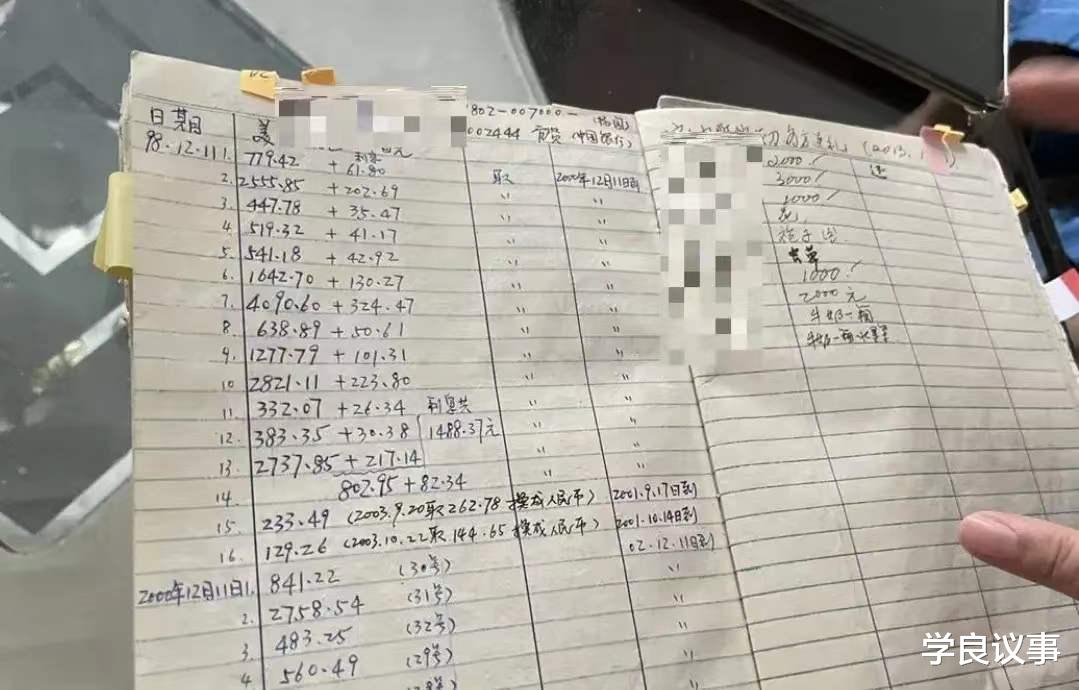 802-007000-
日期 美 002444 (中国银行)
98.12.11 1. 779.42 + 61.80 取 2000年12月11日到
2. 2555.85 + 202.69 " "
3. 447.78 + 35.47 " "
4. 519.32 + 41.17 " "
5. 541.18 + 42.92 " "
6. 1642.70 + 130.27 " "
7. 4090.60 + 324.47 " "
8. 638.89 + 50.61 " "
9. 1277.79 + 101.31 " "
10 2821.11 + 223.80 " "
11. 332.07 + 26.34 利息共 " "
12. 383.35 + 30.38 1488.37元 " "
13. 2737.85 + 217.14 " "
14. 802.95 + 82.34 " "
15. 233.49 (2003.9.20取262.78换成人民币) 2001.9.17日到
16. 129.26 (2003.10.22取144.65换成人民币) 2001.10.14日到
02.12.11日到
2000年12月11日 1. 841.22 (30号) "
2. 2758.54 (31号) "
3. 483.25 (32号) "
4 560.49 (29号) "
(2013.
2000!
3000!
1000!
1000!
2000元
牛奶一箱
学良议事